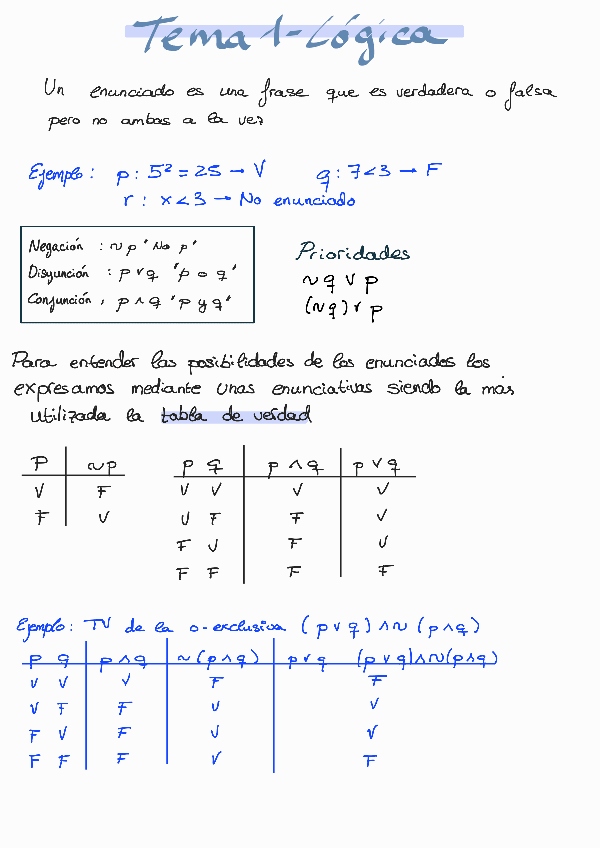 Tema 1-Lógica
Un enunciado es una frase que es verdadera o falsa
pero no ambas a la vez
Ejemplo: p: 5² = 25 → V q: 7<3 → F
r: x<3 → No enunciado
Negación: ~p 'No p'
Disyunción: p ∨ q 'p o q'
Conjunción, p ∧ q 'p y q'
Prioridades
~q ∨ p
(~q) ∨ p
Para entender las posibilidades de los enunciados los
expresamos mediante unas enunciativas siendo la más
utilizada la tabla de verdad
P ~p
V F
F V
p q p ∧ q p ∨ q
V V V V
V F F V
F V F V
F F F F
Ejemplo: TV de la o-exclusiva (p ∨ q) ∧ ~ (p ∧ q)
p q p ∧ q ~(p ∧ q) p ∨ q (p ∨ q) ∧ ~(p ∧ q)
V V V F F
V F F V V
F V F V V
F F F V F